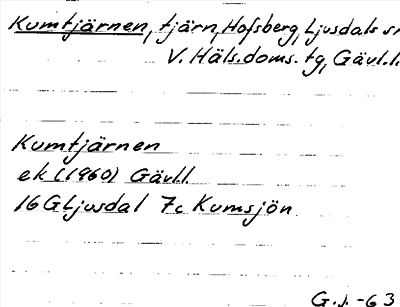 Kumtjärnen, tjärn, Hofsberg, Ljusdals sn
V. Häls. doms. tg, Gävl. l.
Kumtjärnen
ek (1960) Gävll.
16 G Ljusdal 7c Kumsjön
G. J. -63